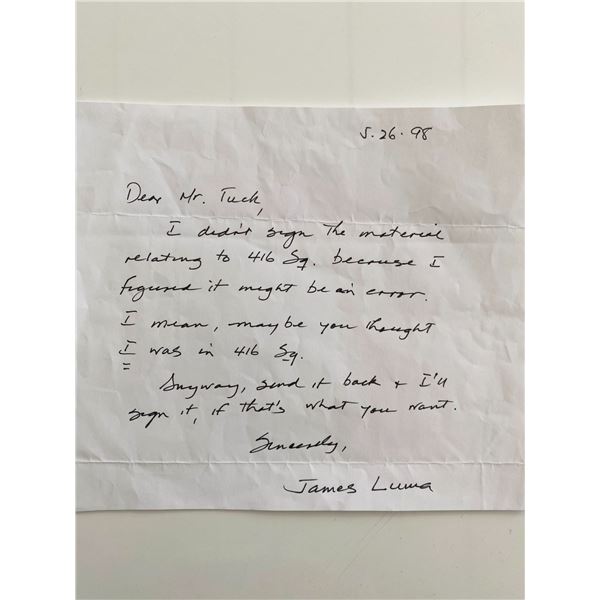 5.26.98
Dear Mr. Tuck,
I didn't sign the material
relating to 416 Sq. because I
figured it might be an error.
I mean, maybe you thought
I was in 416 Sq.
Anyway, send it back + I'll
sign it, if that's what you want.
Sincerely,
James Luma